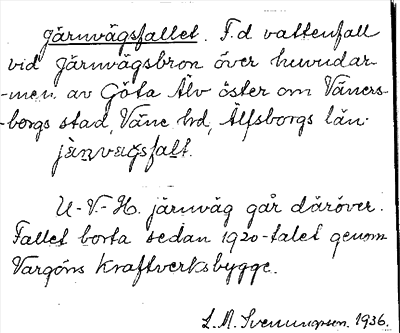 Järnvägsfallet. F.d vattenfall
vid Järnvägsbron över huvudar-
-men av Göta Älv öster om Väners-
-borgs stad, Väne hd, Älfsborgs län.
jä̀ṇvägsfalt.
U-V.-H. järnväg går däröver.
Fallet borta sedan 1920-talet genom
Vargöns Kraftverksbygge.
L. M. Svenungsson. 1936.